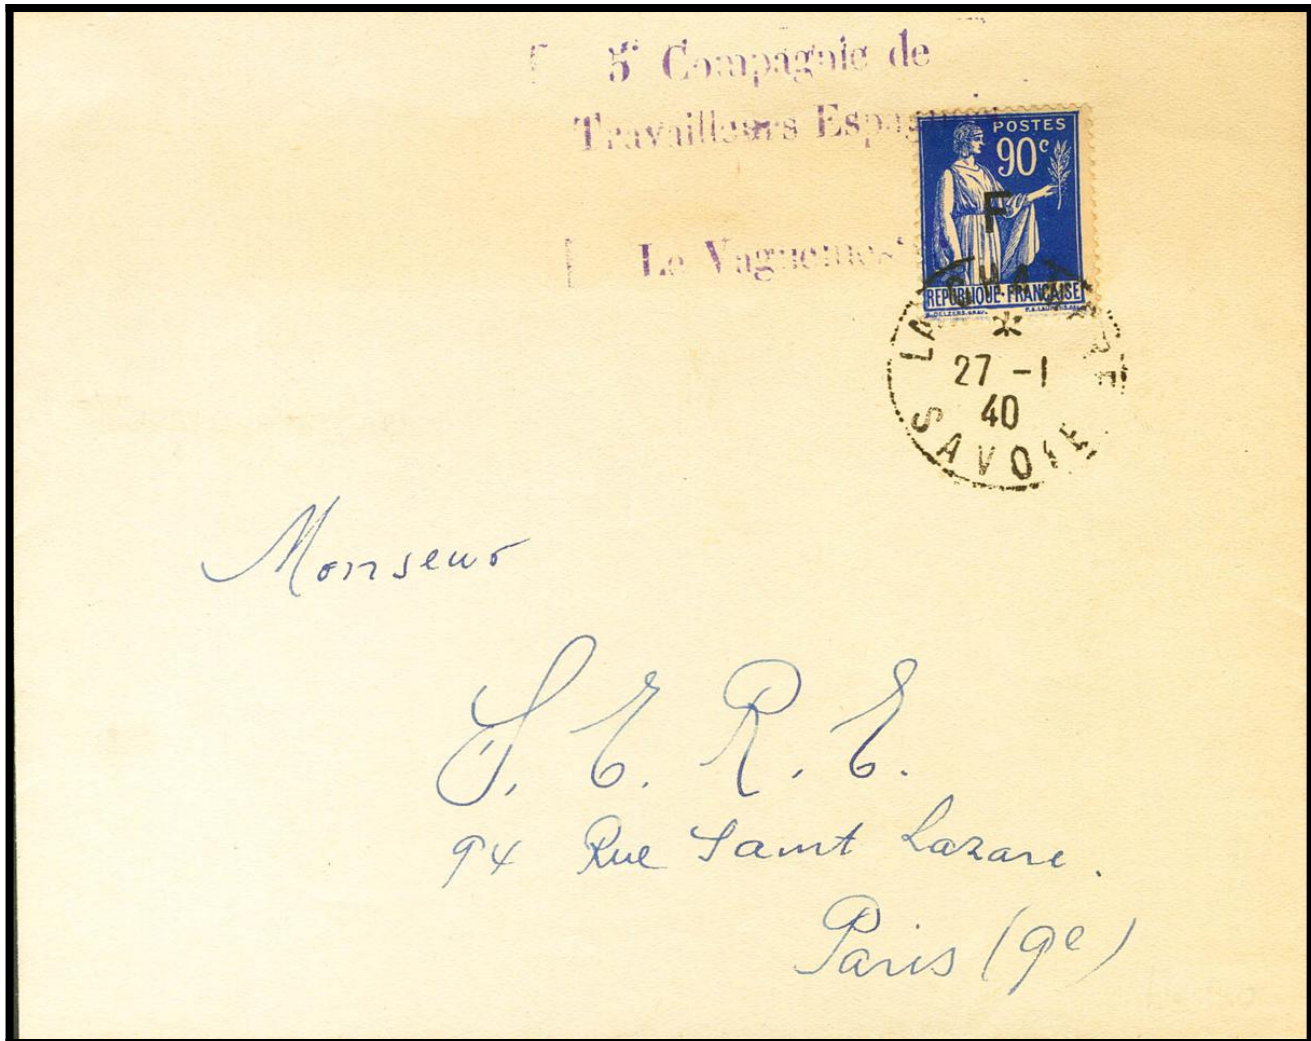 5e Compagnie de
Travailleurs
Le
POSTES
90c
F
REPUBLIQUE-FRANÇAISE
LA
27 -1
40
SAVOIE
Monseur
S. E. R. E.
94 Rue Saint Lazare.
Paris (9e)